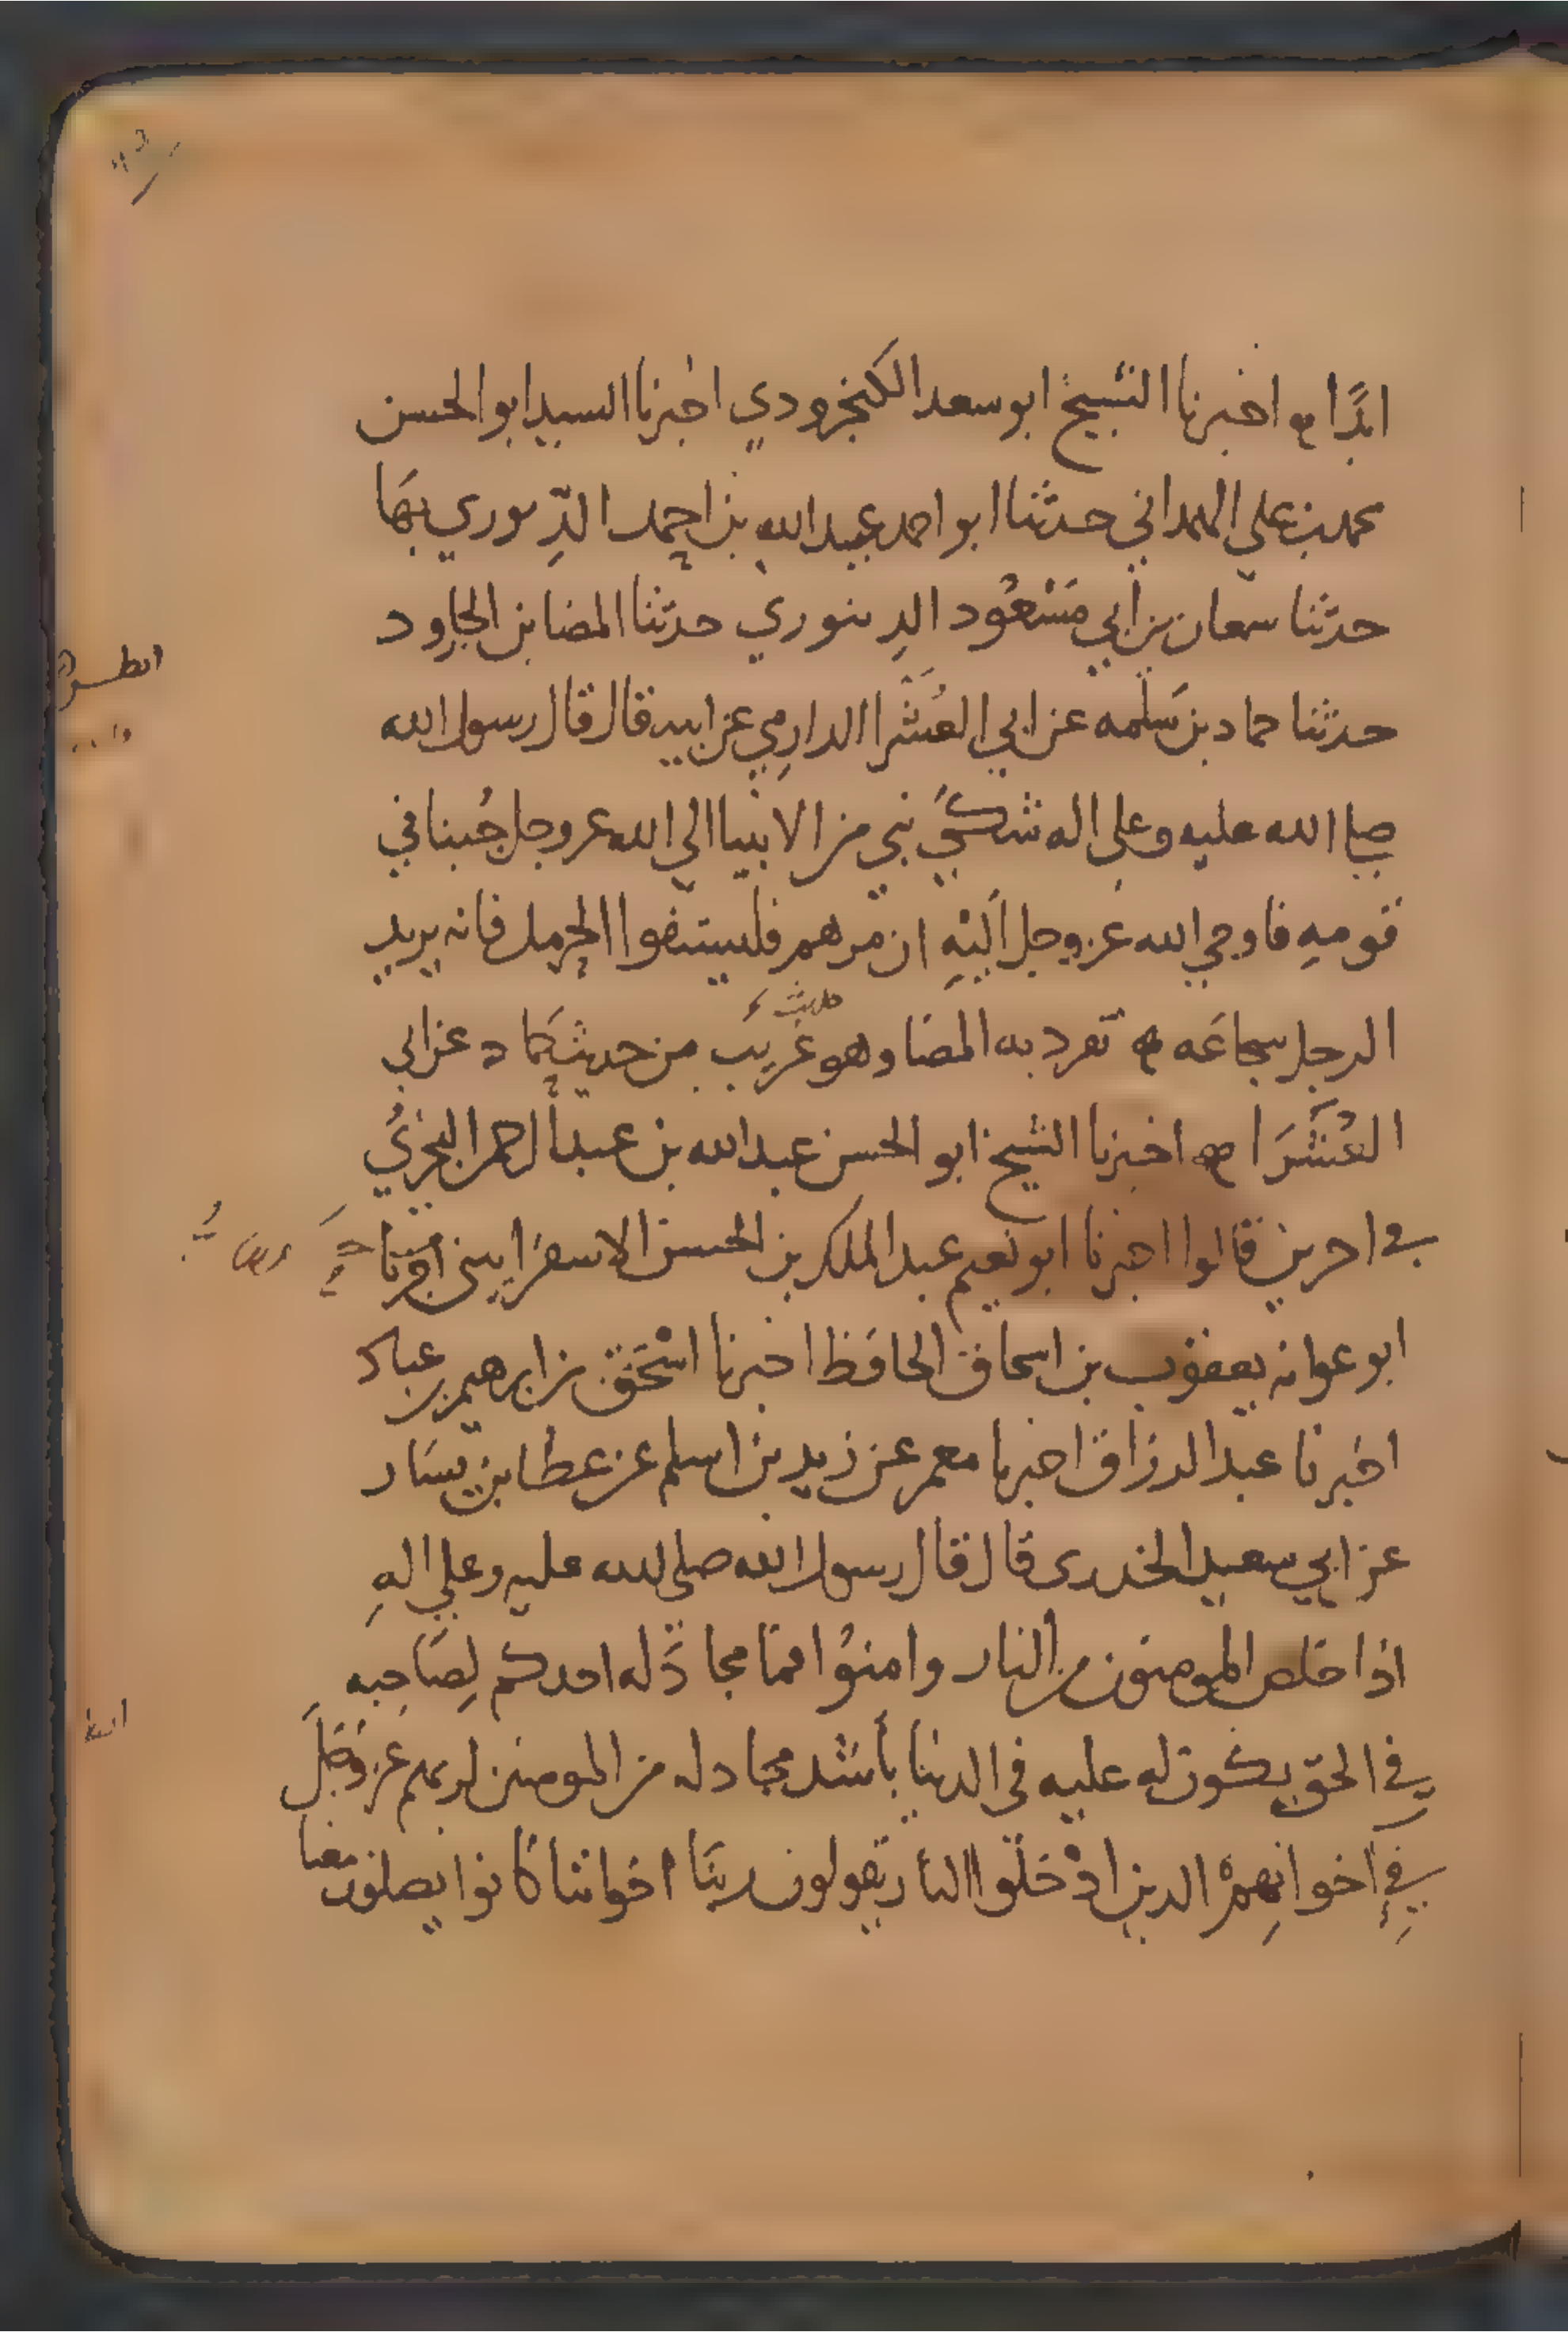 ابدًا ه اخبرنا الشيخ ابو سعد الكنجرودي اخبرنا السيد ابو الحسن
محمد بن علي الهمداني حدثنا ابو احمد عبيد الله بن احمد الدِّىىوري بهَا
حدثنا سمعان بن ابي مَسْعُود الدِينوري حدثنا المضا بن الجارود
حدثنا حماد بن سَلمه عن ابي العُشَرا الدارِمي عن ابيه قال قال رسول الله
صلى الله عليه وعلى اله شكى نبي من الانبيا الى الله عز وجل جُبنا في
قومهِ فاوحي الله عز وجل اليْهِ ان مرهم فليستفوا الحرمل فانه يريد
الرجل سجاعَه ه تفرد به المضا وهو غَريب من حديث حماد عن ابي
حديث
العُشَرَا ه اخبرنا الشيخ ابو الحسن عبد الله بن عبد الرحمن البحِيرُي
في اخرين قالوا اخبرنا ابو نعيم عبد الملك بن الحسن الاسفرايينى اخبرنا
ابو عوانه يعقوب بن اسحاق الحافظ اخبرنا اسْحَق بن ابرهيم بن عباد
اخبرنا عبد الرزاق اخبرنا معمر عن زيد بن اسلم عن عطا بن يسَار
عن ابي سعيد الخدرى قال قال رسول الله صلى الله عليه وعلي الهِ
اذا خلص المومنون من النار وامنوُا فما مجادَله احدكم لِصَاحِبه
في الحق يكون له عليه في الدنيا بأشد مجادله من المومنين لربهم عز وَجَلَّ
فِي اخوانِهمْ الذين ادْخلوا النار يقولون ربنَا اخواننا كانوا يصلون معنا